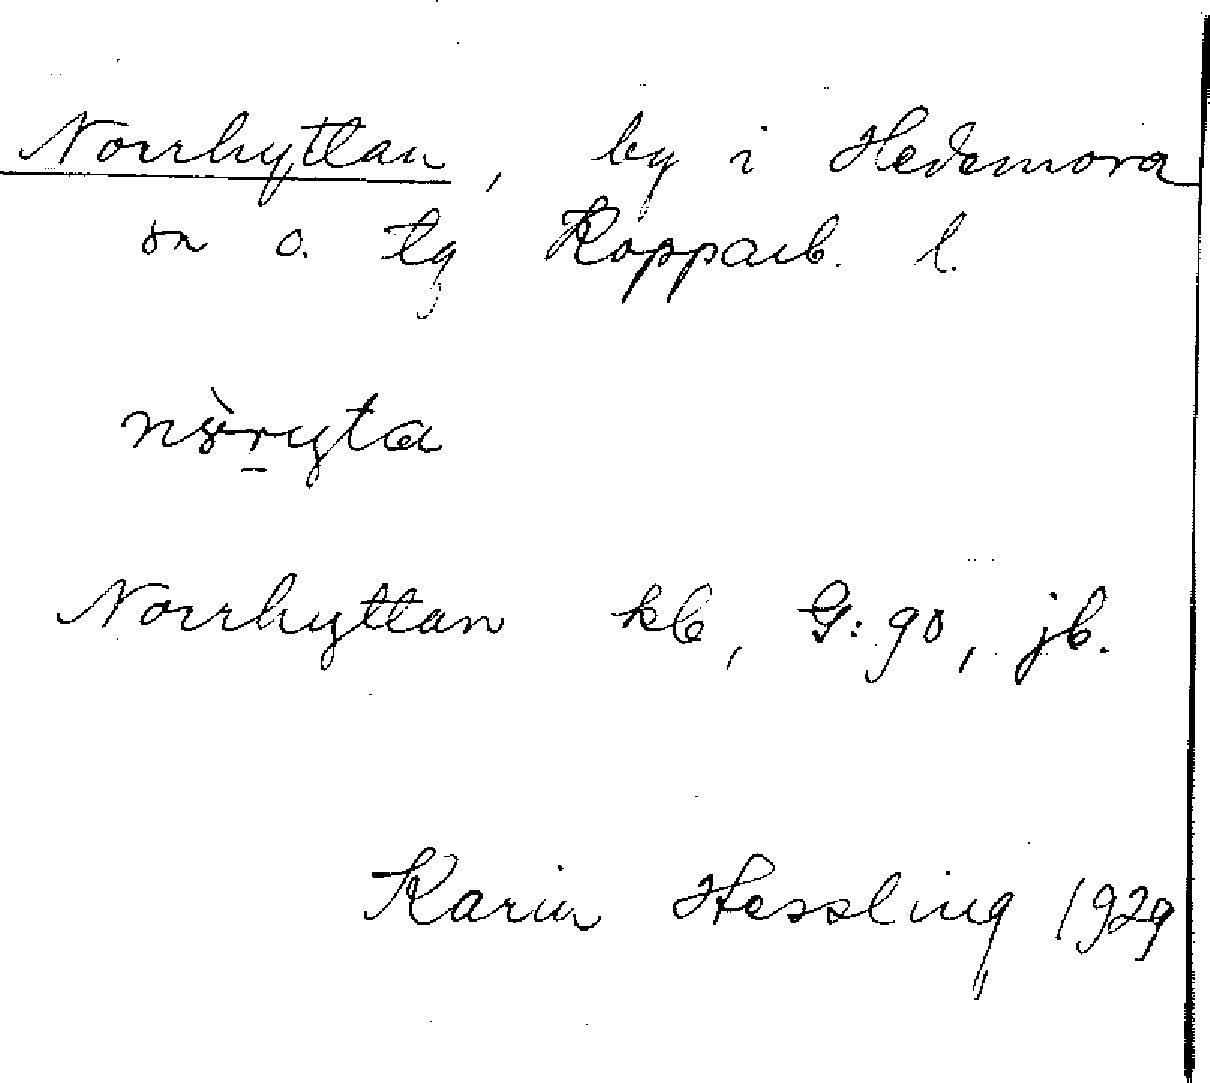 Norrhyttan, by i Hedemora
sn o. tg Kopparb. l.
Norrhyttan kb, G:90, jb.
Karin Hessling 1929